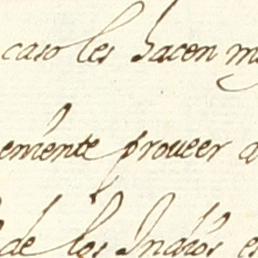 caso les hacen m
emente proueer a
de los Indios es